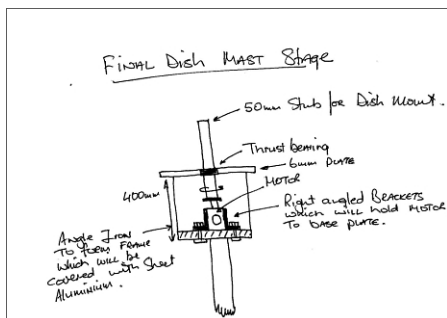 FINAL DISH MAST STAGE
50mm Stub for Dish Mount.
Thrust bearing
6mm PLATE
MOTOR
400mm
Right angled BRACKETS
which will hold MOTOR
To base PLATE.
Angle Iron
To form FRAME
which will be
covered with Sheet
Aluminium.